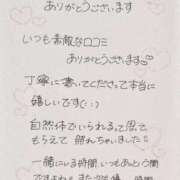 ありがとうございます
いつも素敵な口コミ
ありがとうございます
丁寧に書いてくださって本当に
嬉しいです(:)
自然体でいられるって思って
もらえて 照れちゃいました
一緒にする時間 いつもあと